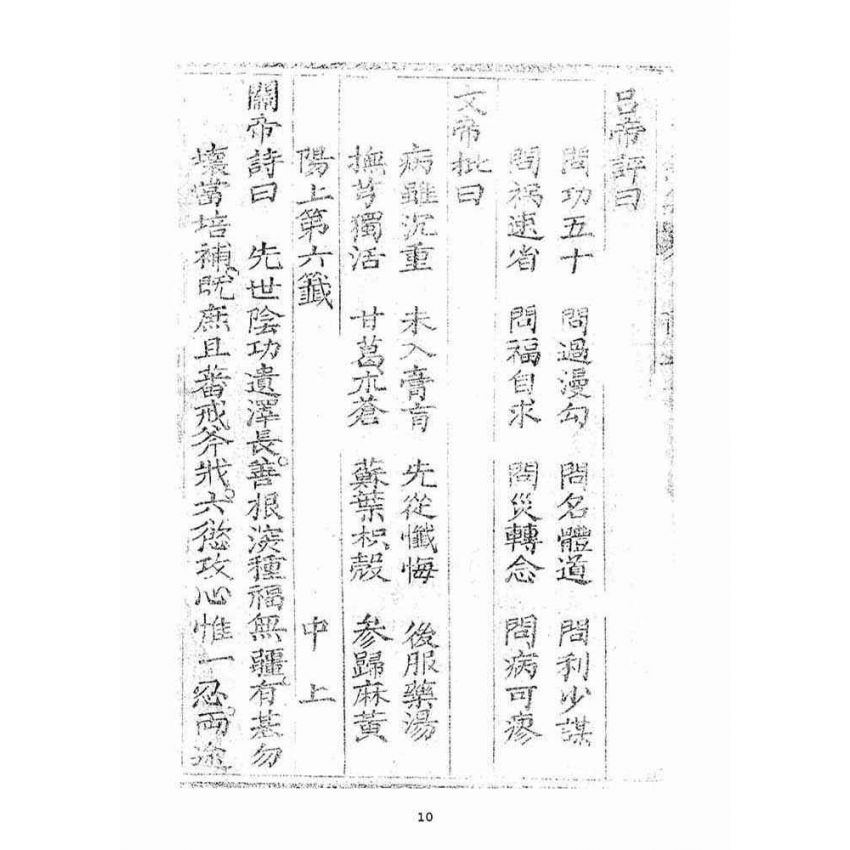 呂帝評曰
問功五十 問過漫勾 問名體道 問利少謀
問禍速省 問福自求 問災轉念 問病可瘳
文帝批曰
病雖沉重 未入膏肓 先從懺悔 後服藥湯
撫芎獨活 甘葛朮蒼 蘇葉枳殼 參歸麻黃
陽上第六籤 中上
關帝詩曰 先世陰功遺澤長。善根深種福無疆。有基勿
壞當培補、既庶且蕃戒斧戕。六慾攻心惟一忍。兩途
10